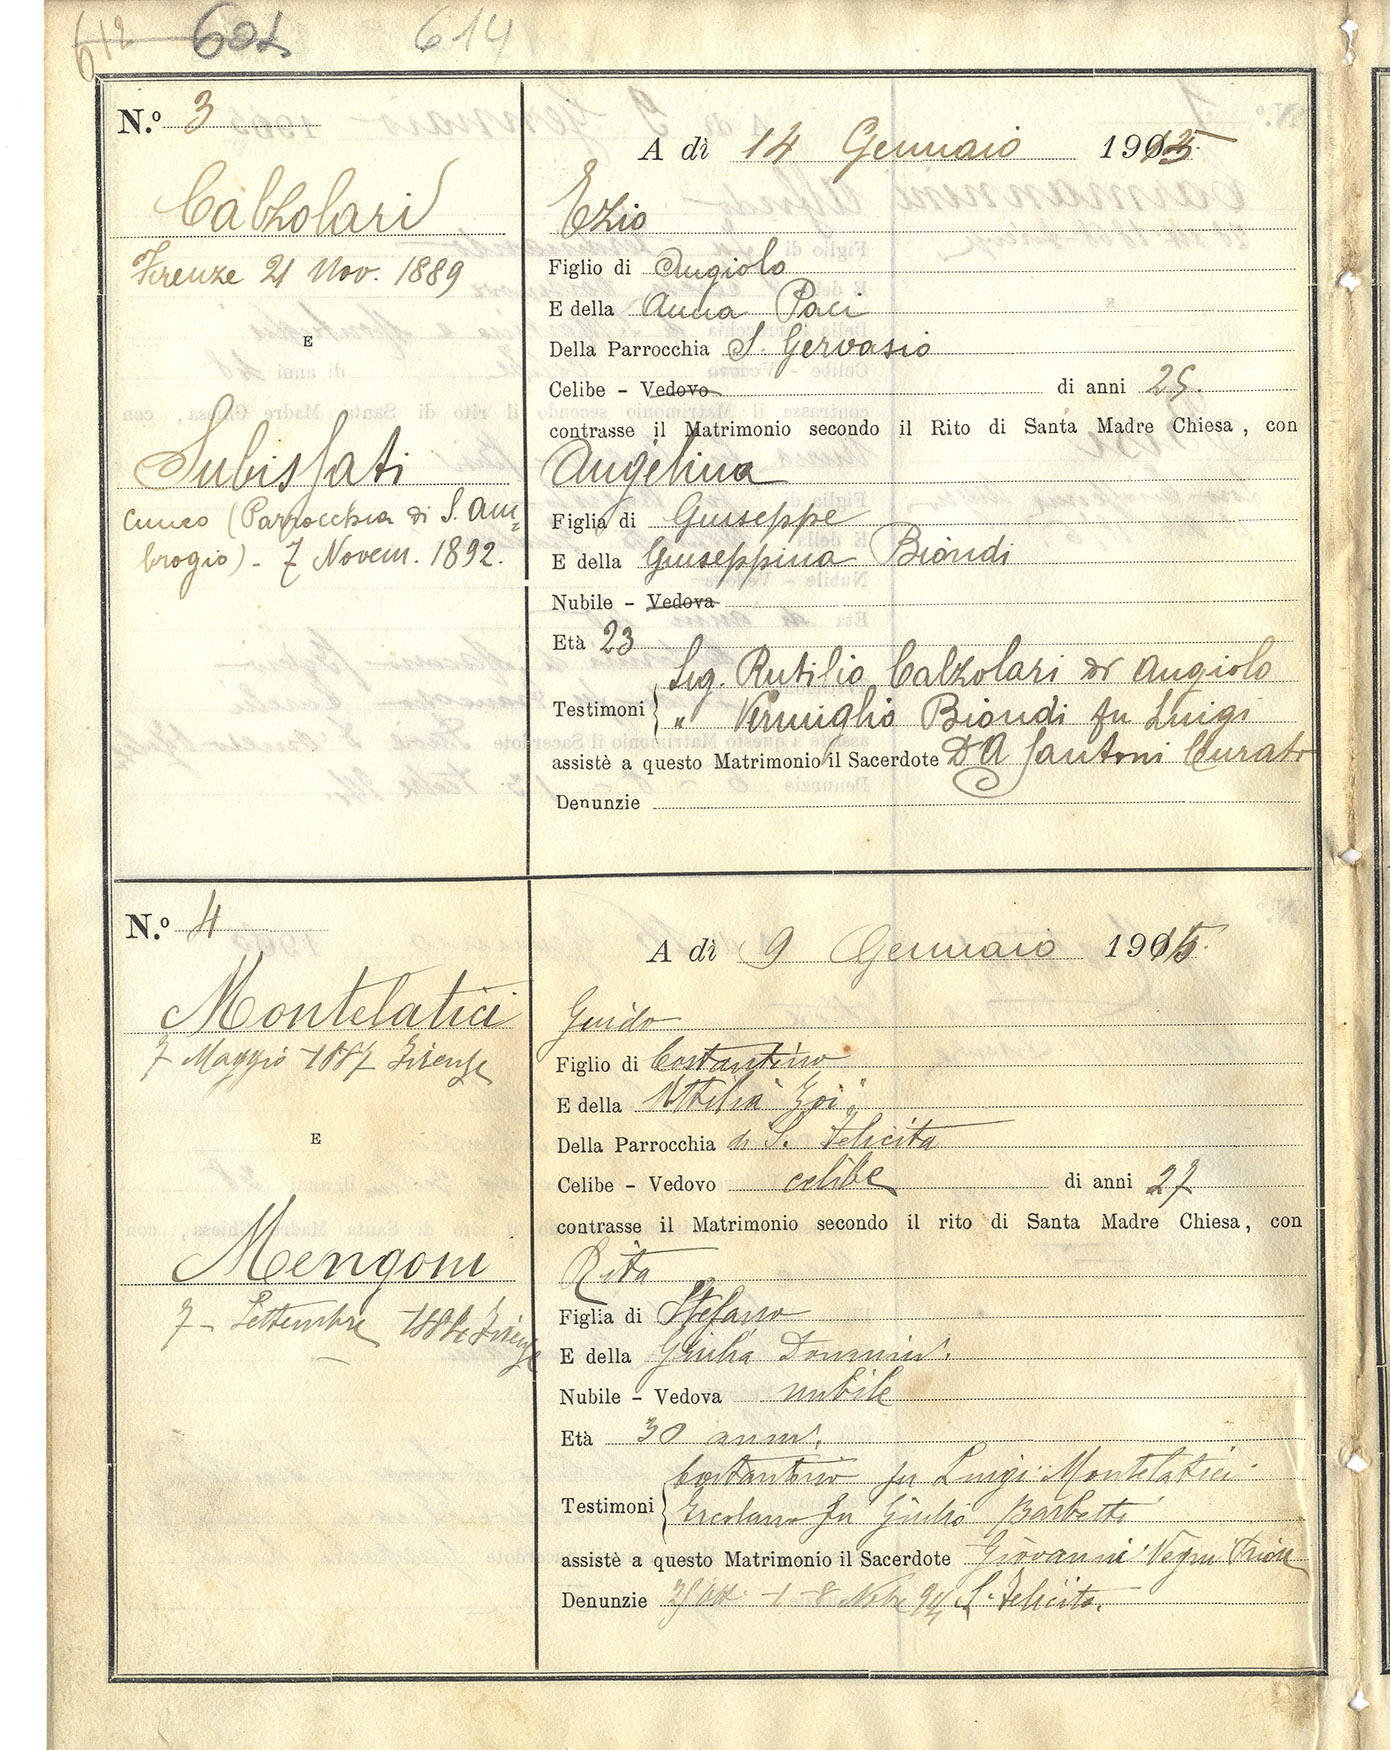 612 601 614
N.º 3
A dì 14 Gennaio 1915
Calzolari
Ezio
Firenze 21 Nov. 1889
Figlio di Angiolo
E della Anna Paci
E
Della Parrocchia S. Gervasio
Celibe - Vedovo di anni 25.
contrasse il Matrimonio secondo il Rito di Santa Madre Chiesa, con
Subissati
Angelina
Cuneo (Parrocchia di S. Am=
Figlia di Giuseppe
brogio) - 7 Novem. 1892.
E della Giuseppina Biondi
Nubile - Vedova
Età 23
Testimoni Sig. Rutilio Calzolari di Angiolo
" Vermiglio Biondi fu Luigi
assistè a questo Matrimonio il Sacerdote D A Santoni Curato
Denunzie
N.º 4
A dì 9 Gennaio 1915.
Montelatici
Guido
7 Maggio 1887 Firenze
Figlio di Costantino
E della Attilia Zoi
E
Della Parrocchia di S. Felicita
Celibe - Vedovo celibe di anni 27
contrasse il Matrimonio secondo il rito di Santa Madre Chiesa, con
Mengoni
Rita
7 - Settembre 1884 Firenze
Figlia di Stefano
E della Giulia Donnini.
Nubile - Vedova nubile
Età 30 anni.
Testimoni Costantino fu Luigi Montelatici
Ercolano fu Giulio Barbetti
assistè a questo Matrimonio il Sacerdote Giovanni Vegni Priore
Denunzie 1 - 8 Nobre S. Felicita.